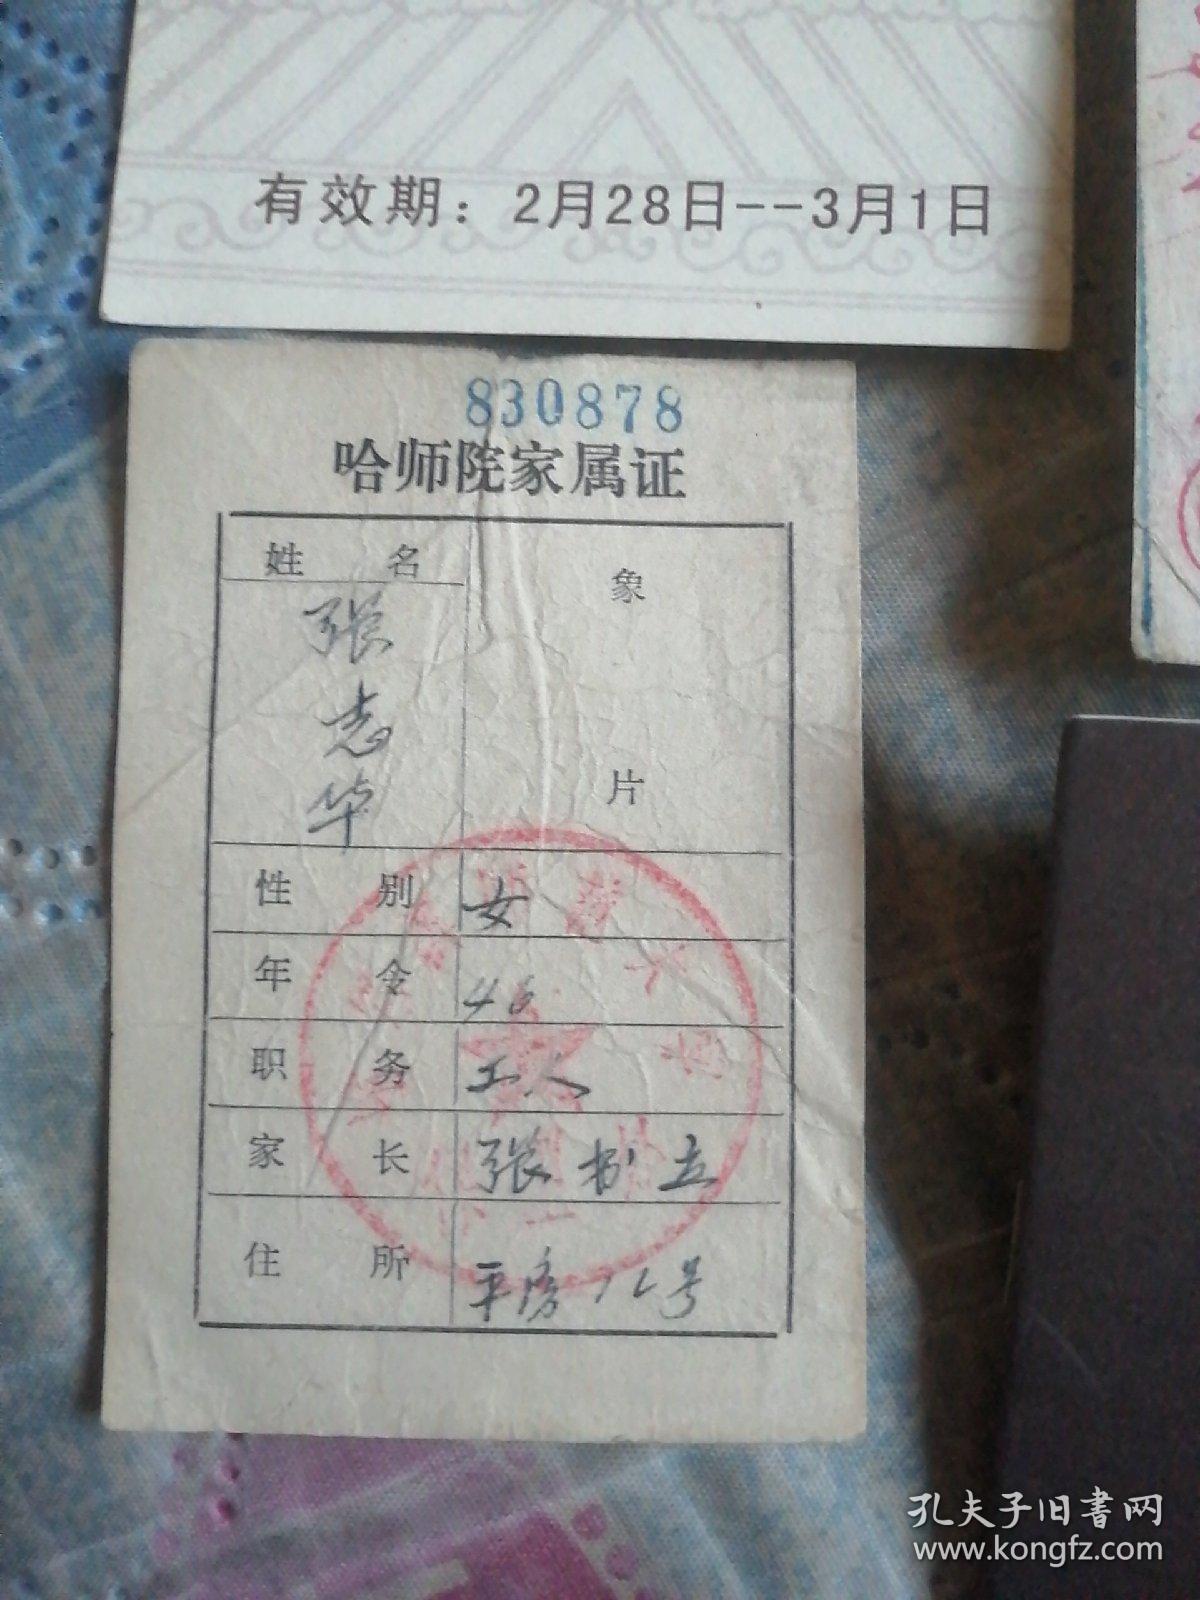 有效期：2月28日--3月1日
830878
哈师院家属证
姓名
张志华
象片
性别 女
年令 46
职务 工人
家长 张书立
住所 平房12号
孔夫子旧书网
www.kongfz.com